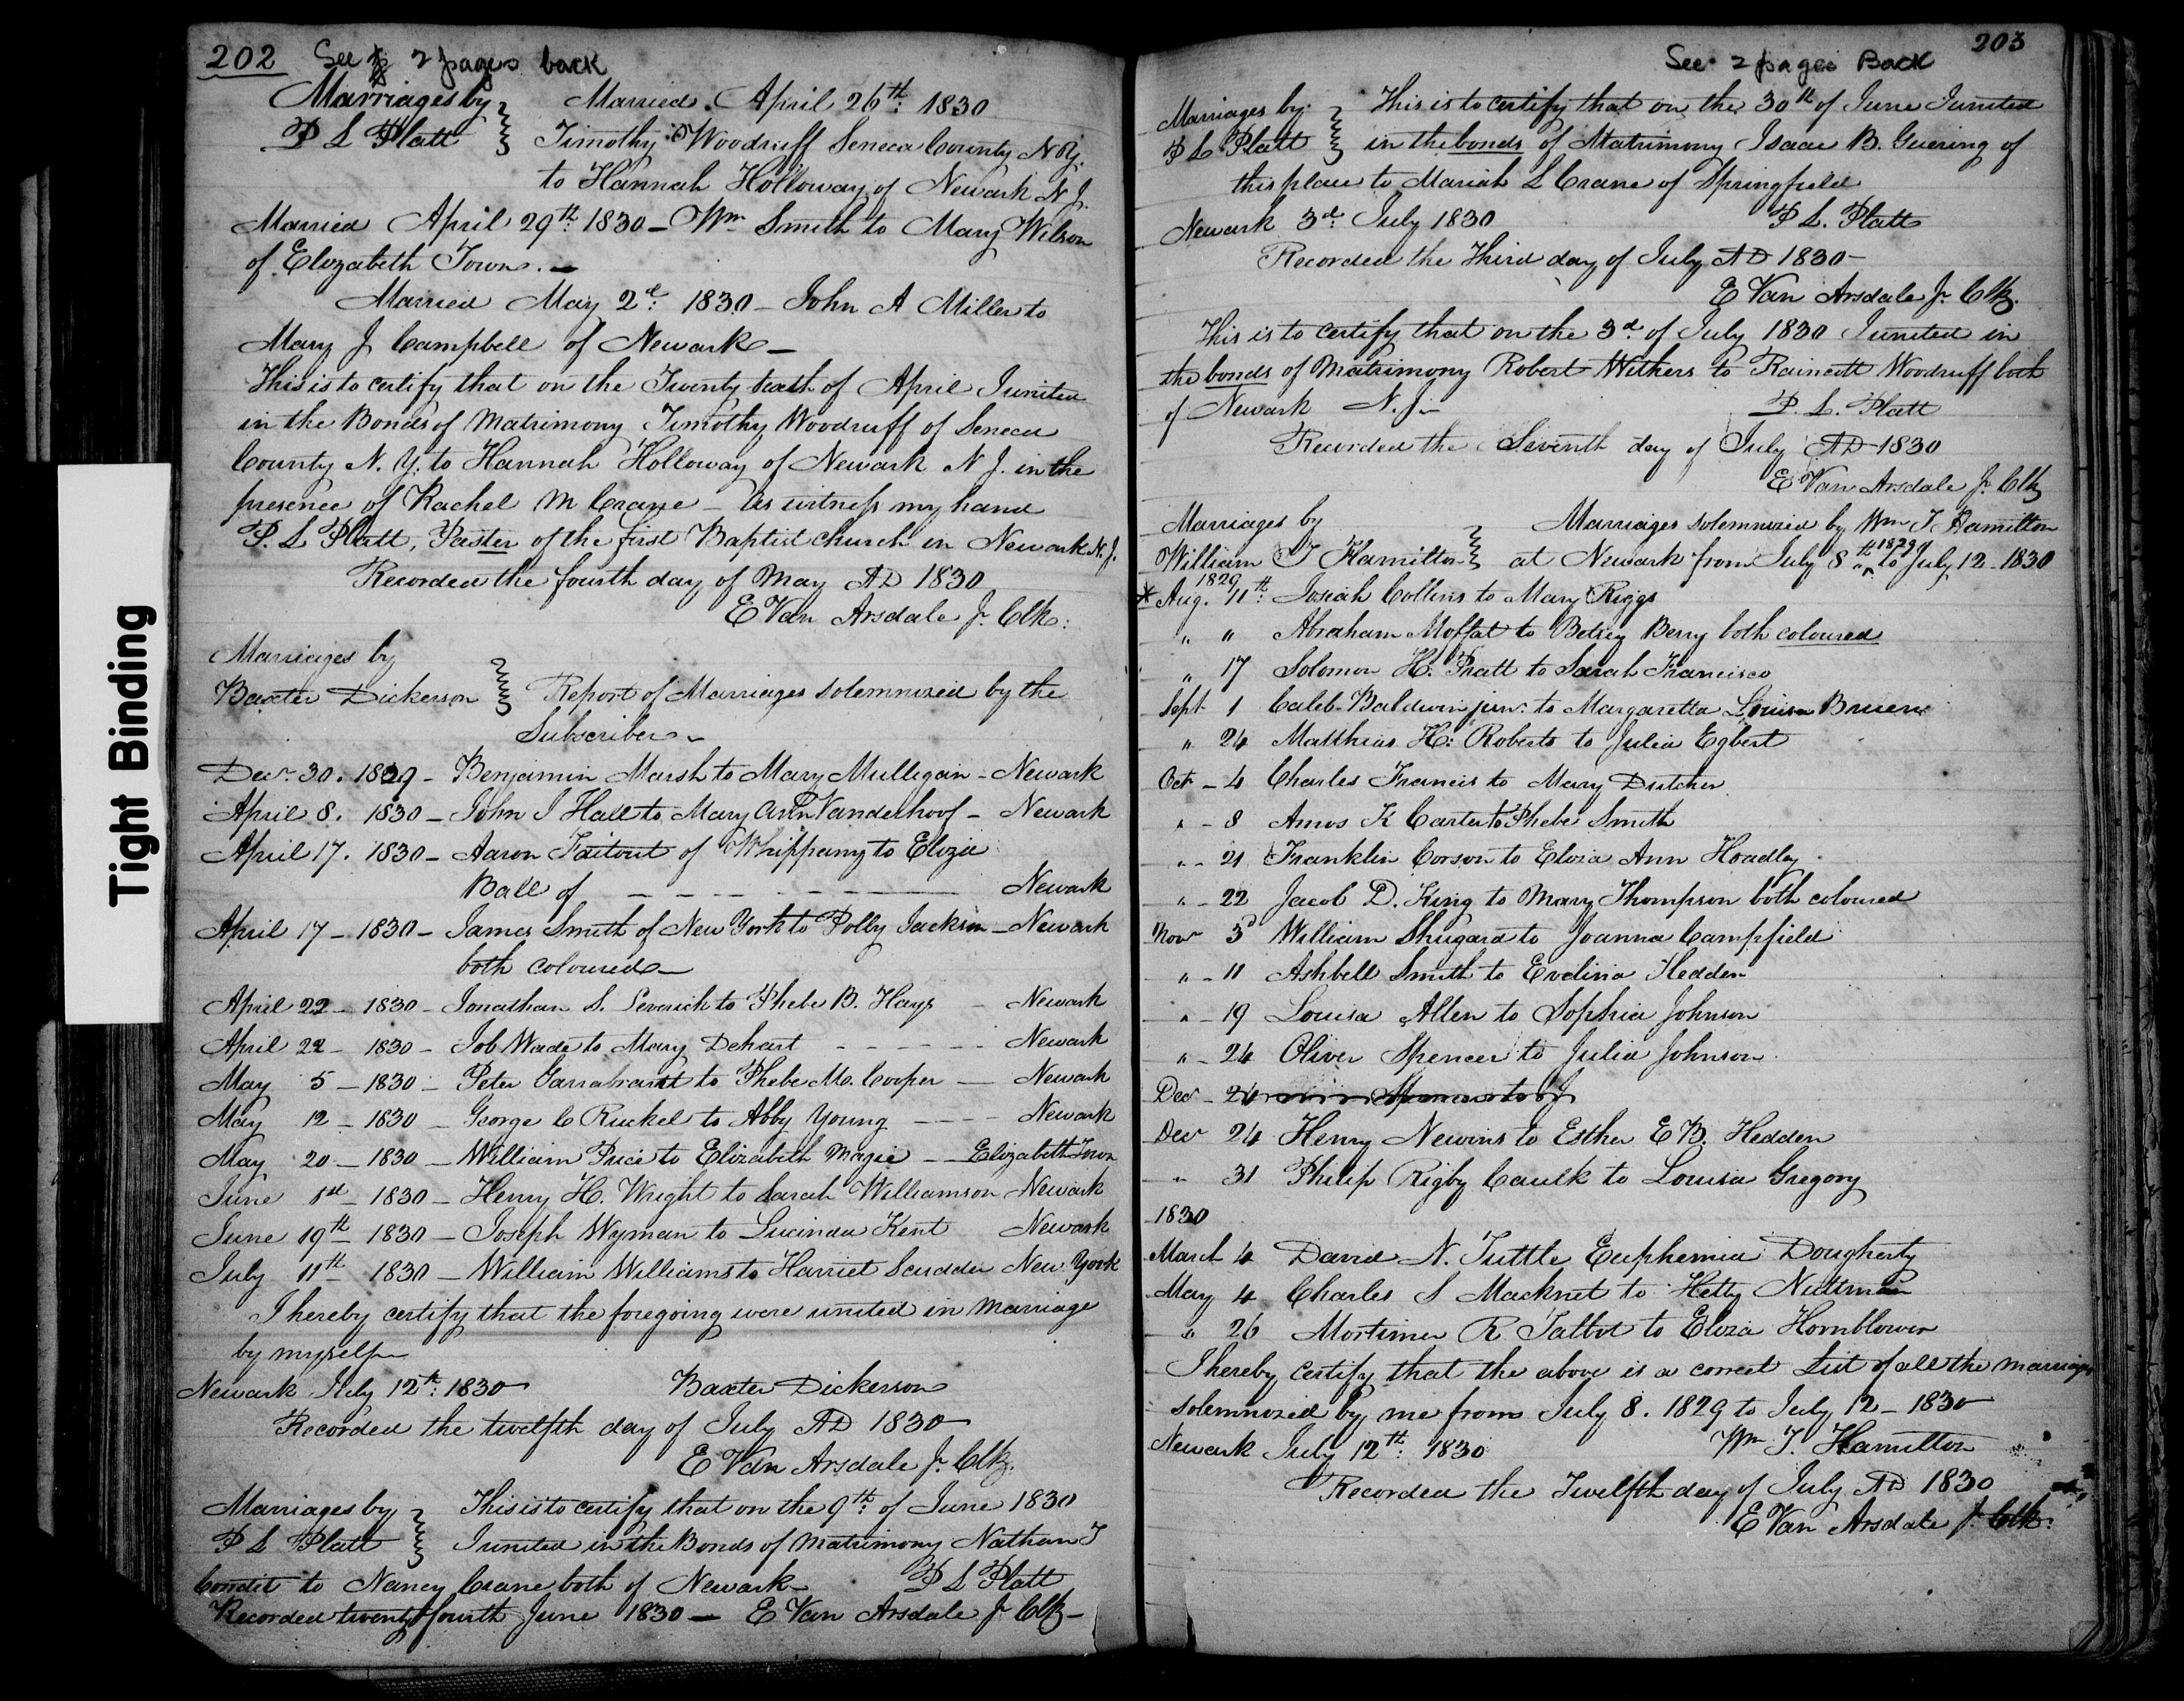 Tight Binding
202 See p 2 pages back
Marriages by
P L Platt
Married April 26th: 1830
Timothy Woodruff Seneca County N.Y.
to Hannah Holloway of Newark N J.
Married April 29th: 1830 - Wm Smith to Mary Wilson
of Elizabeth Town. -
Married May 2d: 1830 - John A Miller to
Mary J Campbell of Newark -
This is to certify that on the Twenty sixth of April I united
in the Bonds of Matrimony Timothy Woodruff of Seneca
County N. Y. to Hannah Holloway of Newark N J. in the
presence of Rachel M Crane - As witness my hand
P. L Platt, Paster of the first Baptist church in Newark N.J.
Recorded the fourth day of May AD 1830
E Van Arsdale Jr. Clk:
Marriages by
Baxter Dickerson
Report of Marriages solemnized by the
Subscriber -
Decr. 30. 1829 - Benjamin Marsh to Mary Mulligain - Newark
April 8. 1830 - John I Hall to Mary Ann Vandelhoof - Newark
April 17. 1830 - Aaron Faitout of Whippany to Eliza
Ball of - - - - - - - Newark
April 17 - 1830 - James Smith of New York to Polly Jackson - Newark
both coloured -
April 22 - 1830 - Jonathan S. to Phebe B. Hays - Newark
April 22 - 1830 - Job Wade to Mary Dehart - - - - - Newark
May 5 - 1830 - Peter Garrabrant to Phebe M. Cooper - Newark
May 12 - 1830 - George C Ruckel to Abby Young - - - Newark
May 20 - 1830 - William Price to Elizabeth Magie - - Elizabeth Town
June 1st - 1830 - Henry H. Wright to Sarah Williamson Newark
June 19th 1830 - Joseph Wyman to Lucinda Kent Newark
July 11th 1830 - William Williams to Harriet Scudder New York
I hereby certify that the foregoing were united in marriage
by myself -
Newark July 12th: 1830 Baxter Dickerson
Recorded the twelfth day of July AD 1830 -
E Van Arsdale Jr. Clk.
Marriages by
P L Platt
This is to certify that on the 9th: of June 1830
I united in the Bonds of matrimony Nathan J
Condit to Nancy Crane both of Newark - P L Platt
Recorded twenty fourth June 1830 - E Van Arsdale Jr Clk -
See 2 pages Back 203
Marriages by
P L Platt
This is to certify that on the 30th of June I united
in the bonds of Matrimony Isaac B. Guering of
this place to Mariah L Crane of Springfield
Newark 3d: July 1830 P L. Platt
Recorded the Third day of July AD 1830 -
E Van Arsdale Jr Clk.
This is to certify that on the 3d of July 1830 I united in
the bonds of Matrimony Robert Withers to Woodruff both
of Newark N. J - P. L. Platt
Recorded the Seventh day of July AD 1830
E Van Arsdale Jr Clk
Marriages by
William T Hamilton
Marriages solemnized by Wm T. Hamilton
at Newark from July 8th 1829 to July 12 - 1830
1829
* Aug. 11th: Josiah Collins to Mary Riggs
" " Abraham Moffat to Betsey Berry both coloured
" 17 Solomon H. Pratt to Sarah Francisco
Sept 1 Caleb Baldwin junr. to Margaretta Louisa Bruen
" 24 Matthias H: Roberts to Julia Egbert
Oct - 4 Charles Francis to Mary Dutcher
" - 8 Amos K Carter to Phebe Smith
" - 21 Franklin Corson to Eliza Ann Hoadley
" - 22 Jacob D. King to Mary Thompson both coloured
Nov 3d William Shugard to Joanna Campfield
" - 11 Ashbell Smith to Evelina Hedden
" - 19 Louisa Allen to Sophia Johnson
" - 24 Oliver Spencer to Julia Johnson
Dec - 24 Spencer to J
Dec 24 Henry Newins to Esther E B. Hedden
" 31 Philip Rigby Caulk to Louisa Gregory
1830
March 4 David N. Tuttle Euphemia Dougherty
May 4 Charles S Macknet to Hetty Nuttman
" 26 Mortimer R Talbot to Eliza Hornblower
I hereby certify that the above is a correct List of all the marriages
solemnized by me from July 8. 1829 to July 12 - 1830
Newark July 12th: 1830 Wm T. Hamilton
Recorded the Twelfth day of July AD 1830
E Van Arsdale Jr Clk.